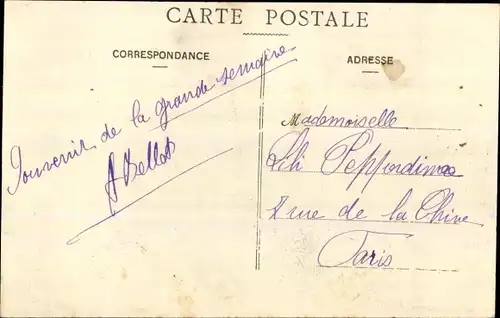 CARTE POSTALE
CORRESPONDANCE
ADRESSE
Souvenir de la grande semaine
A Bellot
Mademoiselle
Lili
rue de la Chine
Paris